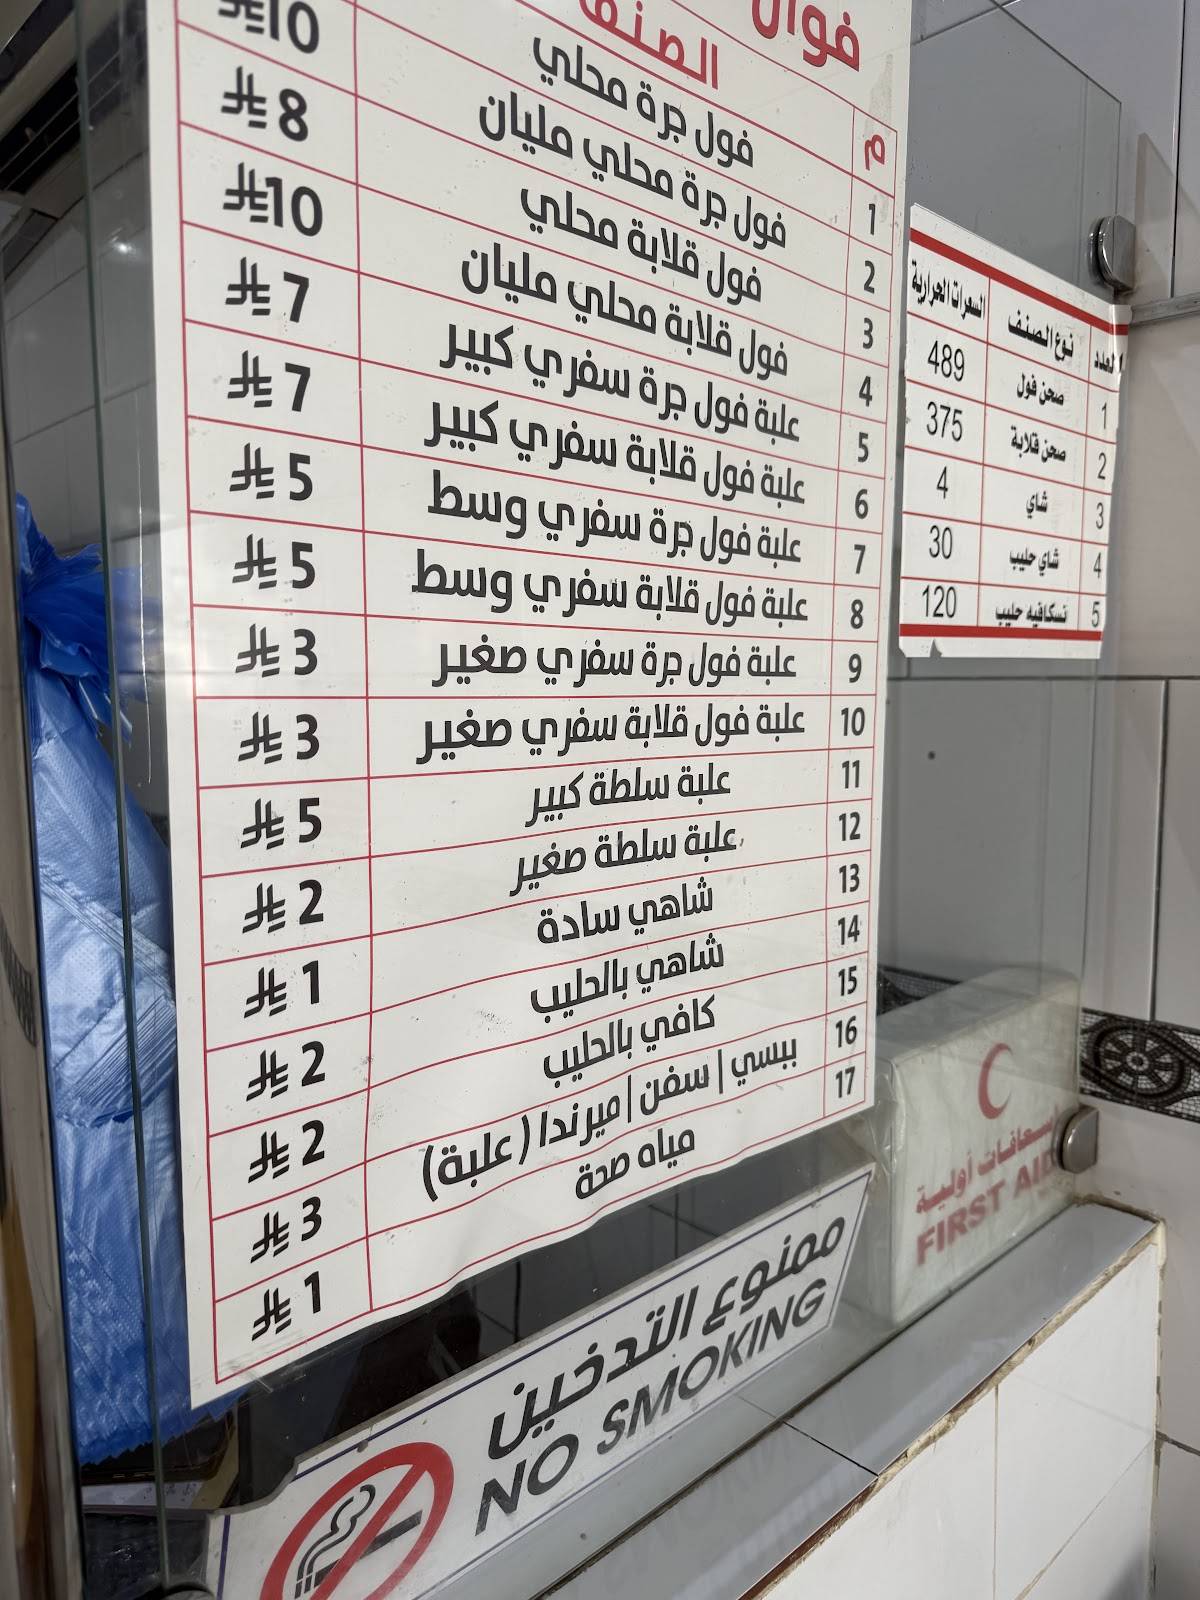 فوال
م الصنف
1 فول جرة محلي
2 فول جرة محلي مليان 10
3 فول قلابة محلي 8
4 فول قلابة محلي مليان 10
5 علبة فول جرة سفري كبير 7
6 علبة فول قلابة سفري كبير 7
7 علبة فول جرة سفري وسط 5
8 علبة فول قلابة سفري وسط 5
9 علبة فول جرة سفري صغير 3
10 علبة فول قلابة سفري صغير 3
11 علبة سلطة كبير 5
12 علبة سلطة صغير 2
13 شاهي سادة 1
14 شاهي بالحليب 2
15 كافي بالحليب 2
16 ببسي | سفن | ميرندا (علبة) 3
17 مياه صحة 1
العدد نوع الصنف السعرات الحرارية
1 صحن فول 489
2 صحن قلابة 375
3 شاي 4
4 شاي حليب 30
5 نسكافيه حليب 120
إسعافات أولية
FIRST AID
ممنوع التدخين
NO SMOKING